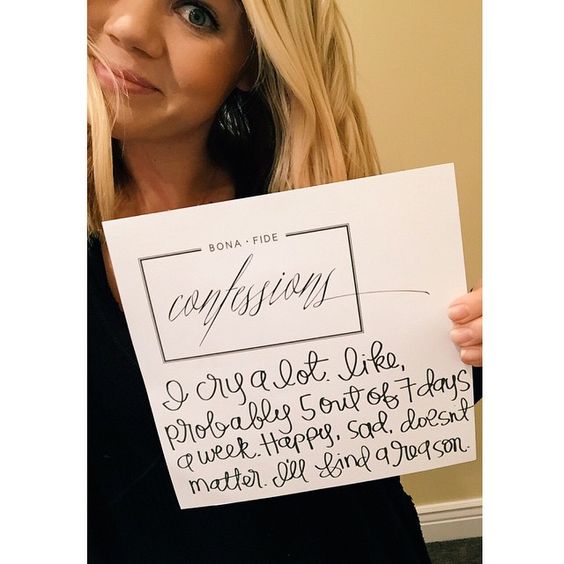 BONA • FIDE
confessions
I cry a lot. like,
probably 5 out of 7 days
a week. Happy, sad, doesnt
matter. I'll find a reason.